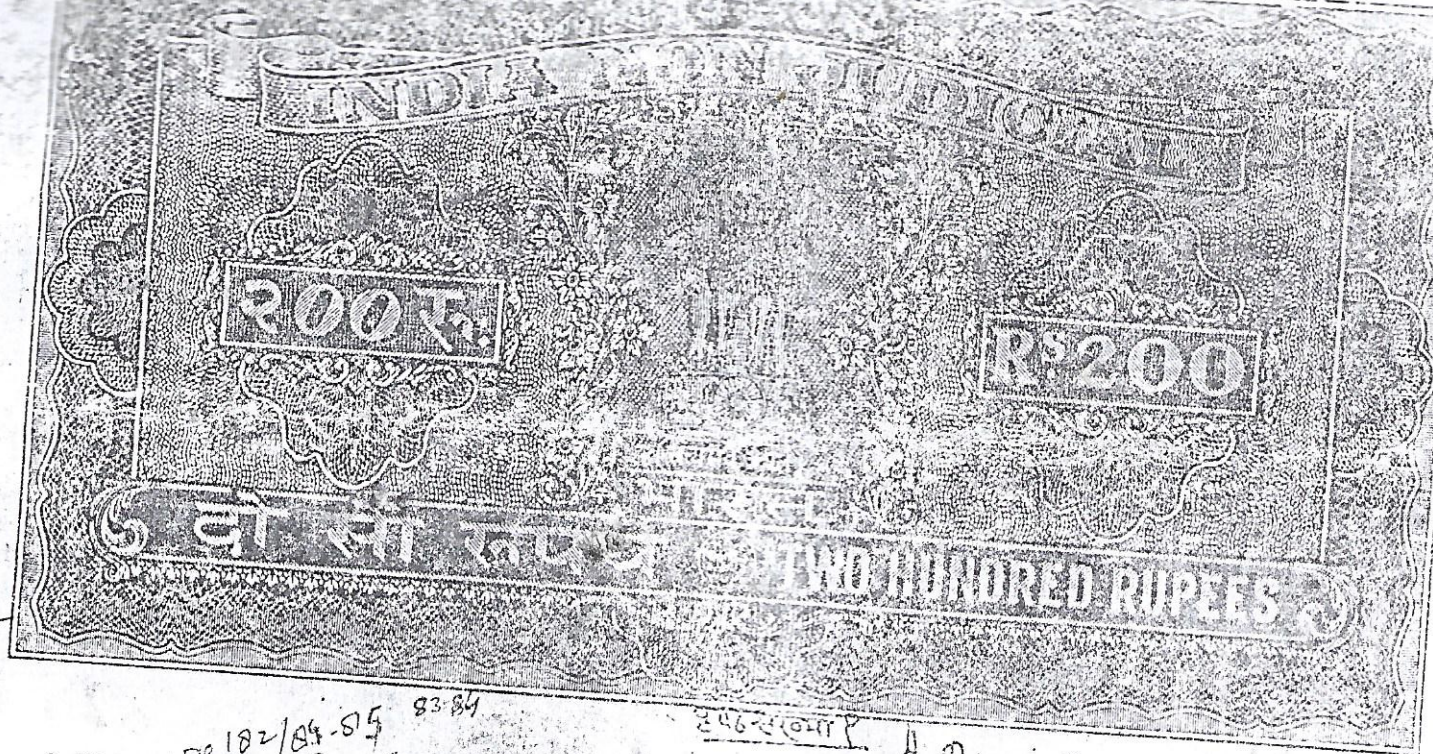 INDIA NON JUDICIAL
२00 रू.
Rs. 200
भारत
दो सौ रूपये
TWO HUNDRED RUPEES
182/84-85 83-84